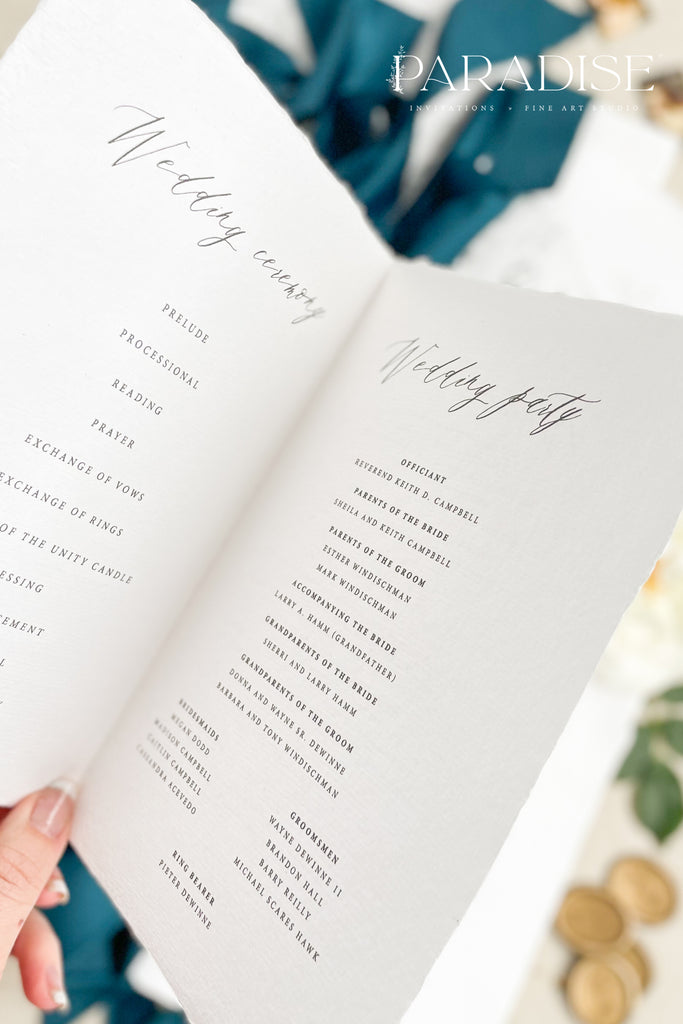 PARADISE
INVITATIONS • FINE ART STUDIO
Wedding ceremony
PRELUDE
PROCESSIONAL
READING
PRAYER
EXCHANGE OF VOWS
EXCHANGE OF RINGS
OF THE UNITY CANDLE
Wedding party
OFFICIANT
REVEREND KEITH D. CAMPBELL
PARENTS OF THE BRIDE
SHEILA AND KEITH CAMPBELL
PARENTS OF THE GROOM
ESTHER WINDISCHMAN
MARK WINDISCHMAN
ACCOMPANYING THE BRIDE
LARRY A. HAMM (GRANDFATHER)
GRANDPARENTS OF THE BRIDE
SHERRI AND LARRY HAMM
GRANDPARENTS OF THE GROOM
DONNA AND WAYNE SR. DEWINNE
BARBARA AND TONY WINDISCHMAN
BRIDESMAIDS
MEGAN DODD
MADISON CAMPBELL
CAITLIN CAMPBELL
CASSANDRA ACEVEDO
GROOMSMEN
WAYNE DEWINNE II
BRANDON HALL
BARRY REILLY
MICHAEL SCARES HAWK
RING BEARER
PIETER DEWINNE